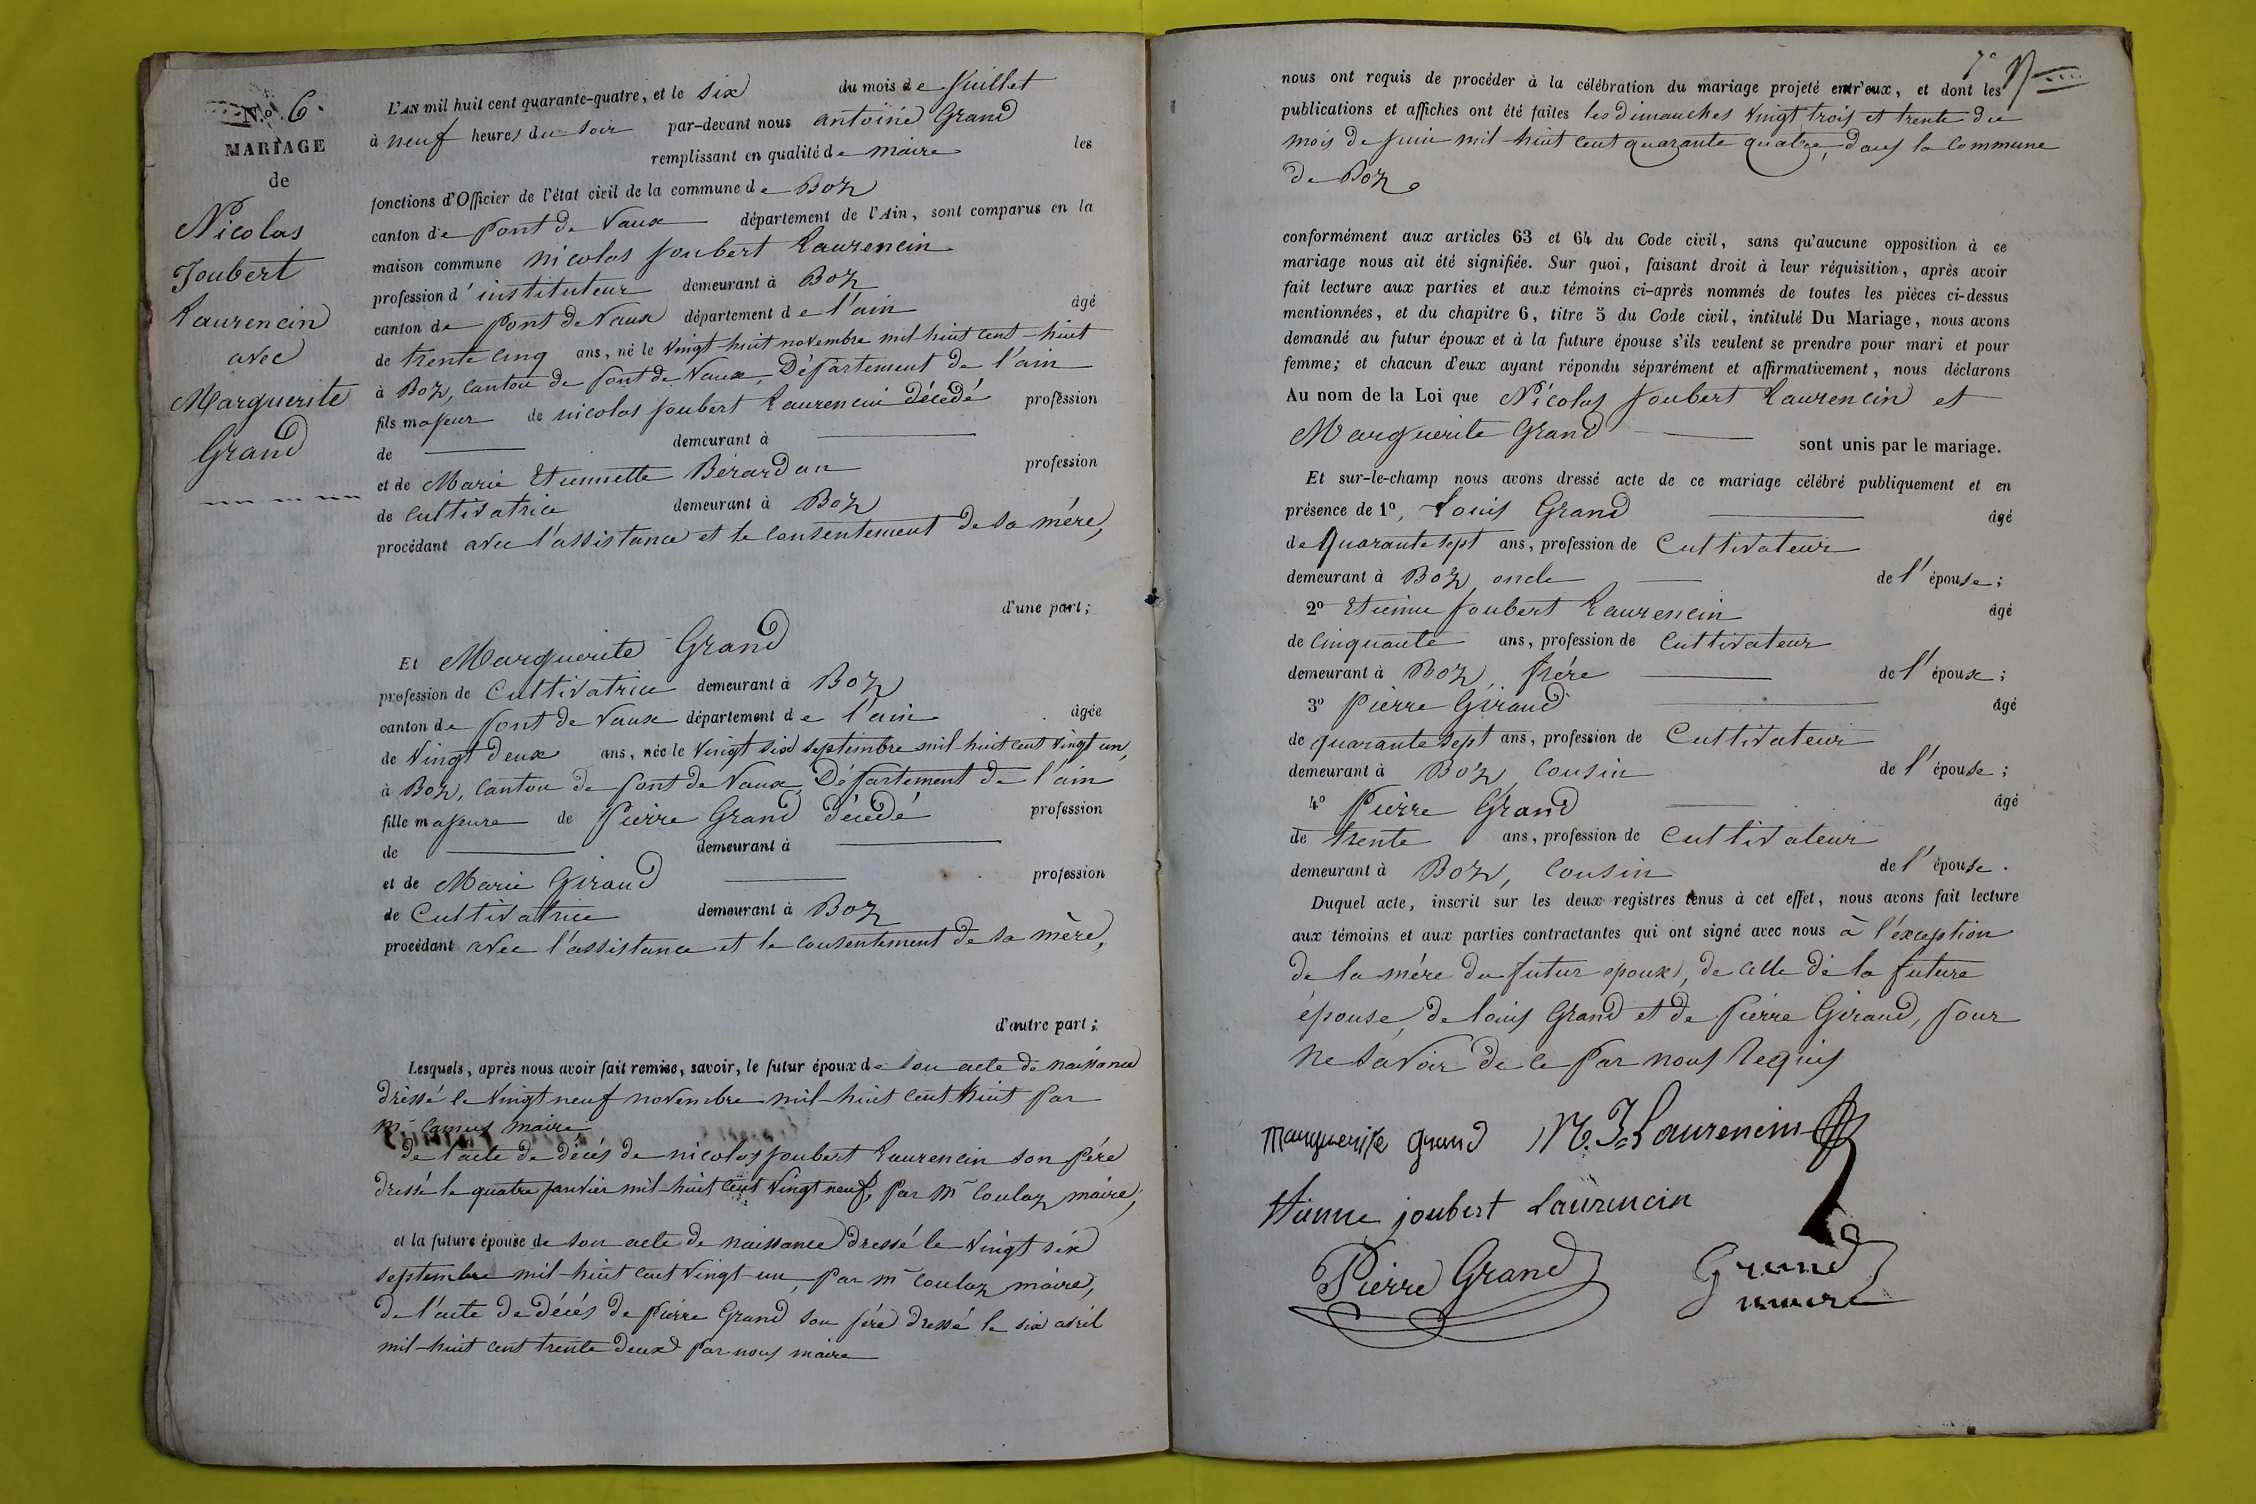 N.o 6.
MARIAGE
de
Nicolas
Joubert
Laurencin
avec
Marguerite
Grand
L'AN mil huit cent quarante-quatre, et le six du mois de Juillet
à neuf heures du soir par-devant nous antoine Grand
remplissant en qualité de maire les
fonctions d'Officier de l'état civil de la commune de Boz
canton de pont de Vaux département de l'Ain, sont comparus en la
maison commune nicolas Joubert Laurencin
profession d'instituteur demeurant à Boz
canton de pont de Vaux département de l'ain âgé
de trente cinq ans, né le vingt-huit novembre mil-huit cent-huit
à Boz, canton de pont de Vaux, Département de l'ain
fils majeur de nicolas Joubert Laurencin décédé profession
de demeurant à
et de Marie Etiennette Bérardan profession
de cultivatrice demeurant à Boz
procédant avec l'assistance et le consentement de sa mére,
d'une part;
Et Marguerite Grand
profession de Cultivatrice demeurant à Boz
canton de pont de Vaux département de l'ain âgée
de vingt deux ans, née le vingt six septembre mil-huit cent vingt un,
à Boz, canton de pont de Vaux, Département de l'ain
fille majeure de Pierre Grand décédé profession
de demeurant à
et de Marie Giraud profession
de Cultivatrice demeurant à Boz
procédant avec l'assistance et le consentement de sa mère,
d'autre part;
Lesquels, après nous avoir fait remise, savoir, le futur époux de son acte de naissance
dréssé le vingt neuf novembre mil-huit cent huit par
mr Camus maire
de l'acte de décés de nicolas Joubert Laurencin son pére
dressé le quatre janvier mil-huit cent vingt neuf, par mr Coulaz maire;
et la future épouse de son acte de naissance dressé le vingt six
septembre mil-huit cent vingt-un, par mr Coulaz maire,
de l'acte de décés de Pierre Grand son pére dressé le six avril
mil-huit cent trente deux par nous maire
7e
nous ont requis de procéder à la célébration du mariage projeté entr'eux, et dont les
publications et affiches ont été faites les dimanches vingt trois et trente du
mois de juin mil-huit cent quarante quatre, dans la commune
de Boz
conformément aux articles 63 et 64 du Code civil, sans qu'aucune opposition à ce
mariage nous ait été signifiée. Sur quoi, faisant droit à leur réquisition, après avoir
fait lecture aux parties et aux témoins ci-après nommés de toutes les pièces ci-dessus
mentionnées, et du chapitre 6, titre 5 du Code civil, intitulé Du Mariage, nous avons
demandé au futur époux et à la future épouse s'ils veulent se prendre pour mari et pour
femme; et chacun d'eux ayant répondu séparément et affirmativement, nous déclarons
Au nom de la Loi que Nicolas Joubert Laurencin et
Marguerite Grand sont unis par le mariage.
Et sur-le-champ nous avons dressé acte de ce mariage célébré publiquement et en
présence de 1o, Louis Grand âgé
de Quarante sept ans, profession de Cultivateur
demeurant à Boz, oncle de l'épouse;
2o Etienne Joubert Laurencin âgé
de cinquante ans, profession de cultivateur
demeurant à Boz, frére de l'époux;
3o Pierre Giraud âgé
de quarante sept ans, profession de Cultivateur
demeurant à Boz, cousin de l'épouse;
4o Pierre Grand âgé
de trente ans, profession de cultivateur
demeurant à Boz, Cousin de l'épouse.
Duquel acte, inscrit sur les deux registres tenus à cet effet, nous avons fait lecture
aux témoins et aux parties contractantes qui ont signé avec nous à l'éxception
de la mére du futur époux, de celle de la future
épouse, de louis Grand et de Pierre Giraud, pour
ne savoir de ce par nous requis
Marguerite Grand N. J. Laurencin
Etienne joubert Laurencin
Pierre Grand Grand
maire